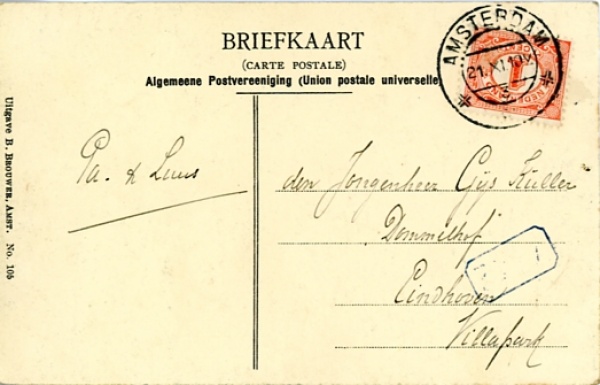 BRIEFKAART
(CARTE POSTALE)
Algemeene Postvereeniging (Union postale universelle)
AMSTERDAM
21.XI.
3
1
NEDERLAND
Pa. & Luus
den Jongenheer Gijs Küller
Dommelhof
Eindhoven
Villapark
Uitgave B. BROUWER, AMST. No. 105